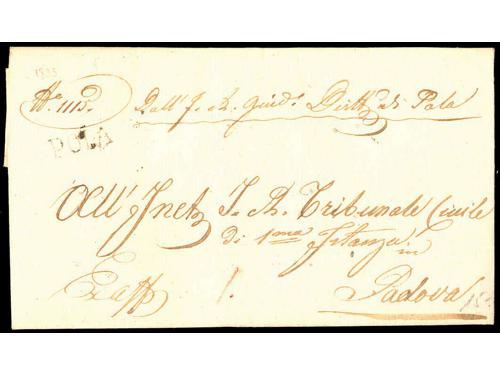 1835
N.o 1115. Dall' I. R. Giud.o Distle di Pola
POLA
All' Inclo I. R. Tribunale Civile
di 1ma Istanza in
Padova
Ex Offo